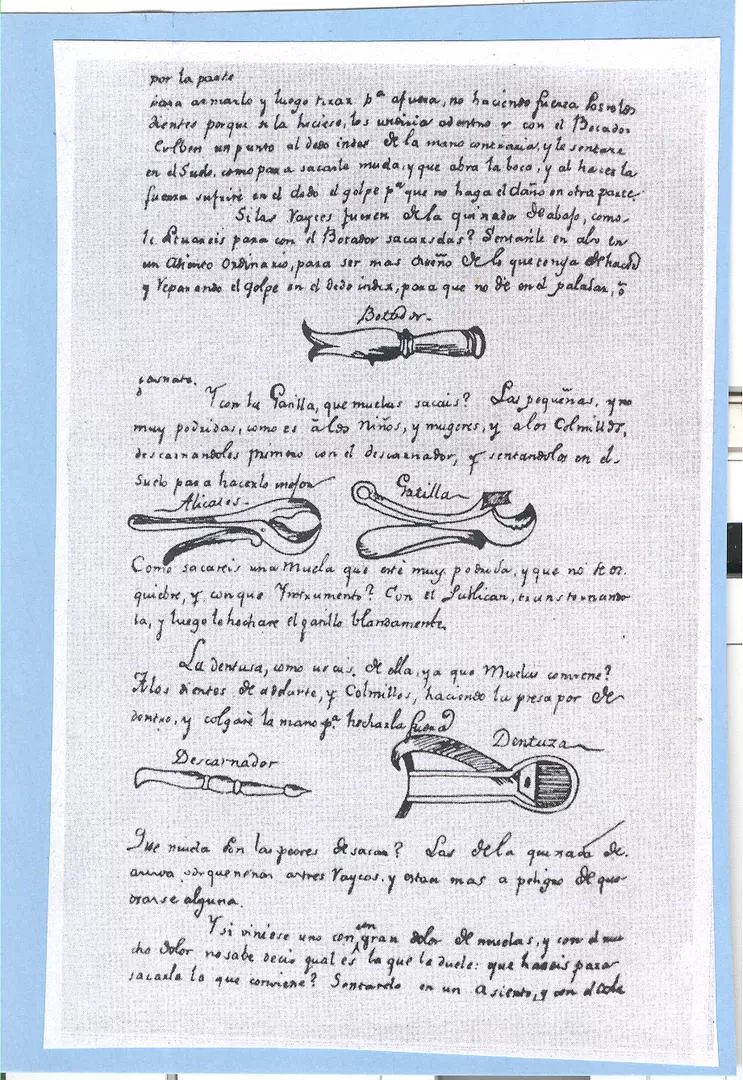 por la parte
para armarlo y luego tirar pª afuera, no haciendo fuerza los otos
dientes porque si la hiciese, los undiria adentro y con el Botador
un punto al dedo indes de la mano contraria, y le sentare
en el Suelo, como para sacarle muela, y que abra la boca, y al hacer la
fuerza sufrire en el dedo el golpe pª que no haga el daño en otra parte.
Si las Rayces fueren de la quijada de abajo, como
para con el Botador sacarsdas? Sentarèle en alto en
un Asiento Ordinario, para ser mas dueño de lo que tenga de hacer
y reparando el golpe en el dedo index, para que no dè en el paladar, ò
Botador.
garnate.
Y con la Gatilla, que muelas sacais? Las pequeñas, y no
muy podridas, como es à los Niños, y mugeres, y a los Colmillos,
descarnandoles primero con el descarnador, y sentandolos en el
Suelo para hacerlo mejor
Alicates.
Gatilla
Como sacareis una Muela que estè muy podrida, y que no se os
quiebre, y con que Ynstrumento? Con el Pulican, transtornando
la, y luego le hechare el gatillo blandamente.
La dentusa, como usais de ella, ya que Muelas conviene?
A los dientes de adelante, y Colmillos, haciendo la presa por de
dentro, y colgarè la mano pª hecharla fuera
Dentuza
Descarnador
Que muela son las peores de sacar? Las de la quixada de
arriva porque tienen a tres Rayces, y estan mas a peligro de que
brarse alguna.
Y si viniese uno con con gran dolor de muelas, y con el mu
cho dolor no sabe decir qual es la que le duele: que hareis para
sacarle la que conviene? Sentarelo en un Asiento, y con el cabo